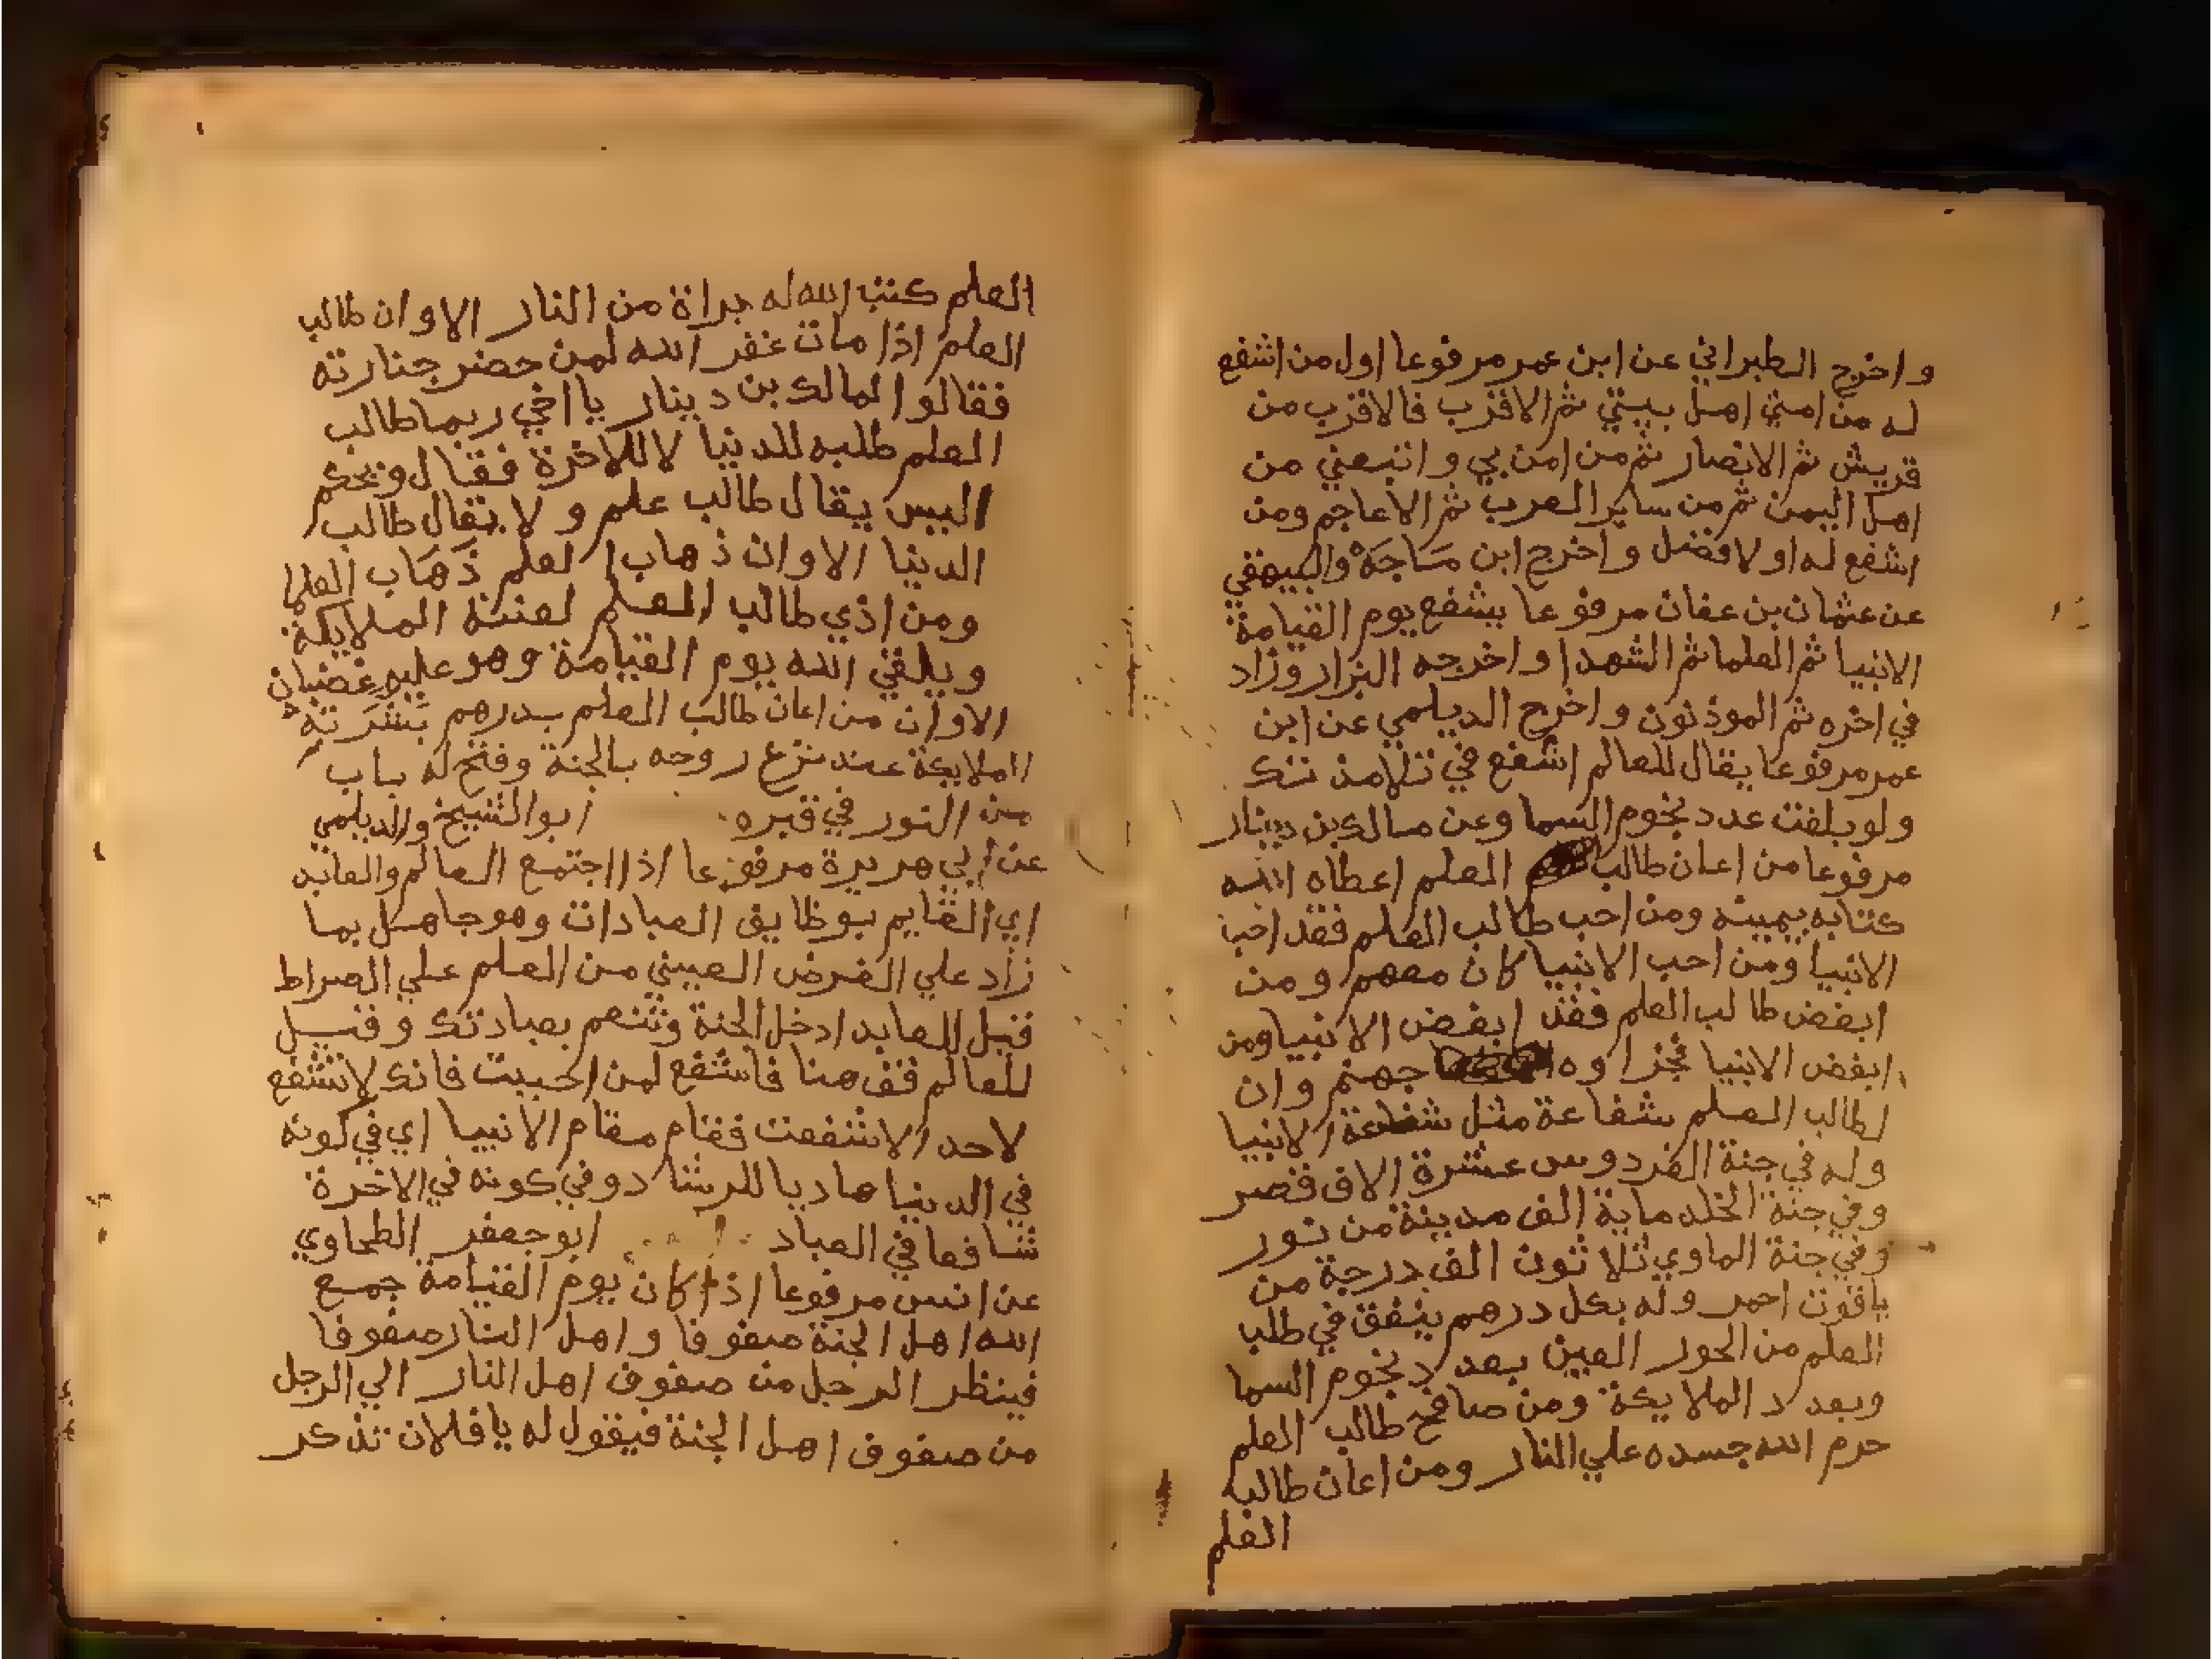 واخرج الطبراني عن ابن عمر مرفوعا اول من اشفع
له من امتي اهل بيتي ثم الاقرب فالاقرب من
قريش ثم الانصار ثم من امن بي واتبعني من
اهل اليمن ثم من ساير العرب ثم الاعاجم ومن
اشفع له اولا فضل واخرج ابن مَاجَهْ والبيهقي
عن عثمان بن عفان مرفوعا يشفع يوم القيامة
الانبيا ثم العلما ثم الشهدا واخرجه البزار وزاد
في اخره ثم الموذنون واخرج الديلمي عن ابن
عمر مرفوعا يقال للعالم اشفع في تلامذتك
ولو بلغت عدد نجوم السما وعن مالك بن دينار
مرفوعا من اعان طالب العلم اعطاه الله
كتابه بيمينه ومن احب طالب العلم فقد احب
الانبيا ومن احب الانبيا كان معهم ومن
ابغض طالب العلم فقد ابغض الانبيا ومن
ابغض الانبيا فجزاوه جهنم وان
لطالب العلم شفاعة مثل شفاعة الانبيا
وله في جنة الفردوس عشرة الاف قصر
وفي جنة الخلد ماية الف مدينة من نور
وفي جنة الماوي ثلاثون الف درجة من
ياقوت احمر وله بكل درهم ينفق في طلب
العلم من الحور العين بعدد نجوم السما
وبعدد الملايكة ومن صافح طالب العلم
حرم الله جسده علي النار ومن اعان طالب
العلم
العلم كتب الله له براة من النار الا وان طالب
العلم اذا مات غفر الله لمن حضر جنازته
فقالوا لمالك بن دينار يا اخي ربما طالب
العلم طلبه للدنيا لا للاخرة فقال ويحكم
اليس يقال طالب علم ولا يقال طالب
الدنيا الا وان ذهاب العلم ذَهَاب العلما
ومن اذي طالب العلم لعنته الملايكة
ويلقي الله يوم القيامة وهو عليه غضبان
الا وان من اعان طالب العلم بدرهم بَشَرَته
الملايكة عند نزع روحه بالجنة وفتح له باب
من النور في قبره ابو الشيخ والديلمي
عن ابي هريرة مرفوعا اذا اجتمع العالم والعابد
اي القايم بوظايف العبادات وهو جاهل بما
زاد علي الفرض العيني من العلم علي الصراط
قيل للعابد ادخل الجنة وتنعم بعبادتك وقيل
للعالم قف هنا فاشفع لمن احببت فانك لا تشفع
لاحد الا شفعت فقام مقام الانبيا اي في كونه
في الدنيا هاديا للرشاد وفي كونه في الاخرة
شافعا في العباد ابو جعفر الطحاوي
عن انس مرفوعا اذا كان يوم القيامة جمع
الله اهل الجنة صفوفا واهل النار صفوفا
فينظر الرجل من صفوف اهل النار الي الرجل
من صفوف اهل الجنة فيقول له يا فلان تذكر